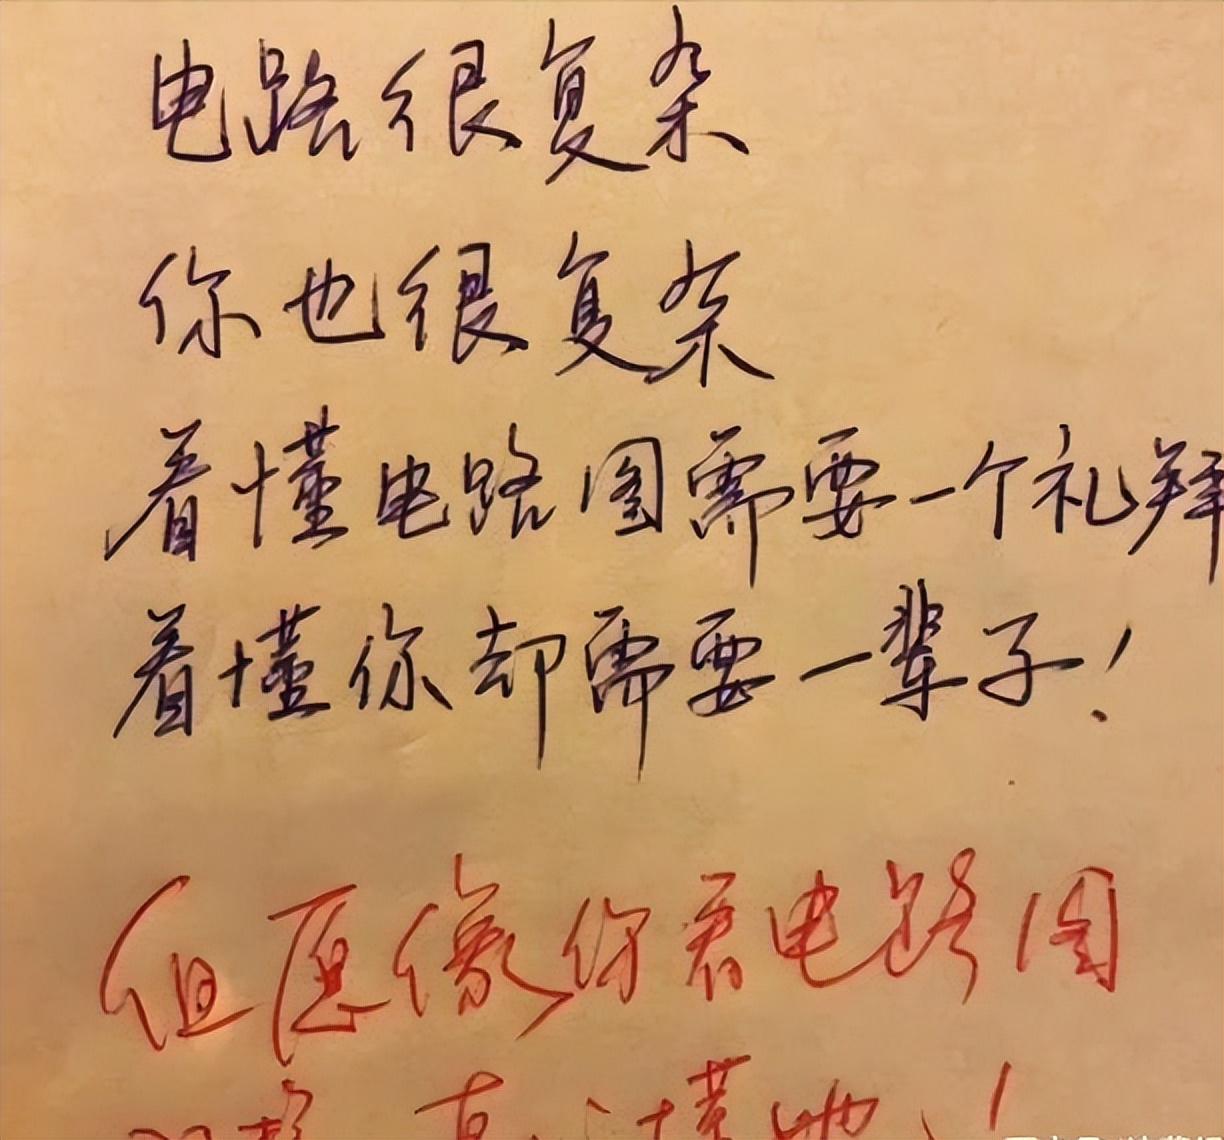 电路很复杂
你也很复杂
看懂电路图需要一个礼拜
看懂你却需要一辈子!
但愿像你看电路图
懂她!